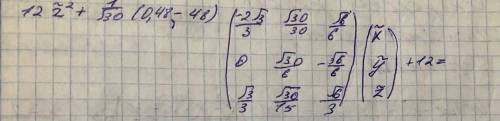 12 z̃² + 1/√30 (0, 48, -48) (-2√3/3 √30/30 √6/6
0 √30/6 -√6/6
√3/3 √30/15 √6/3) (x̃
ỹ
z̃) + 12 =